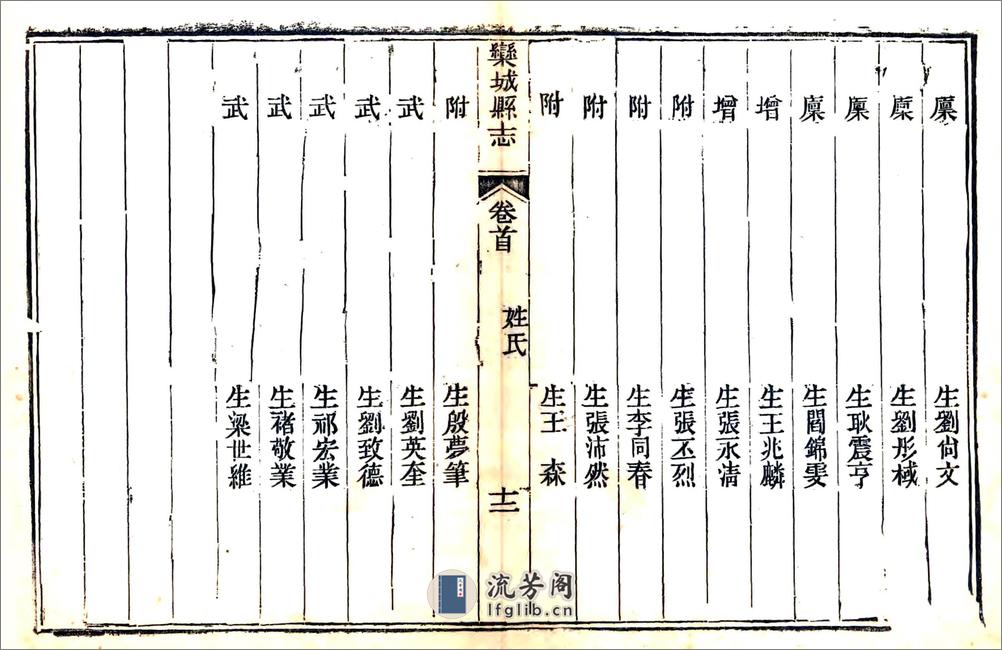 廩生劉尙文
廩生劉彤棫
廩生耿震亨
廩生閻錦雯
增生王兆麟
增生張永清
附生張丕烈
附生李同春
附生張沛然
附生王森
欒城縣志 卷首 姓氏 十二
附生殷夢筆
武生劉英奎
武生劉致德
武生祁宏業
武生褚敬業
武生梁世維
流芳阁
lfglib.cn